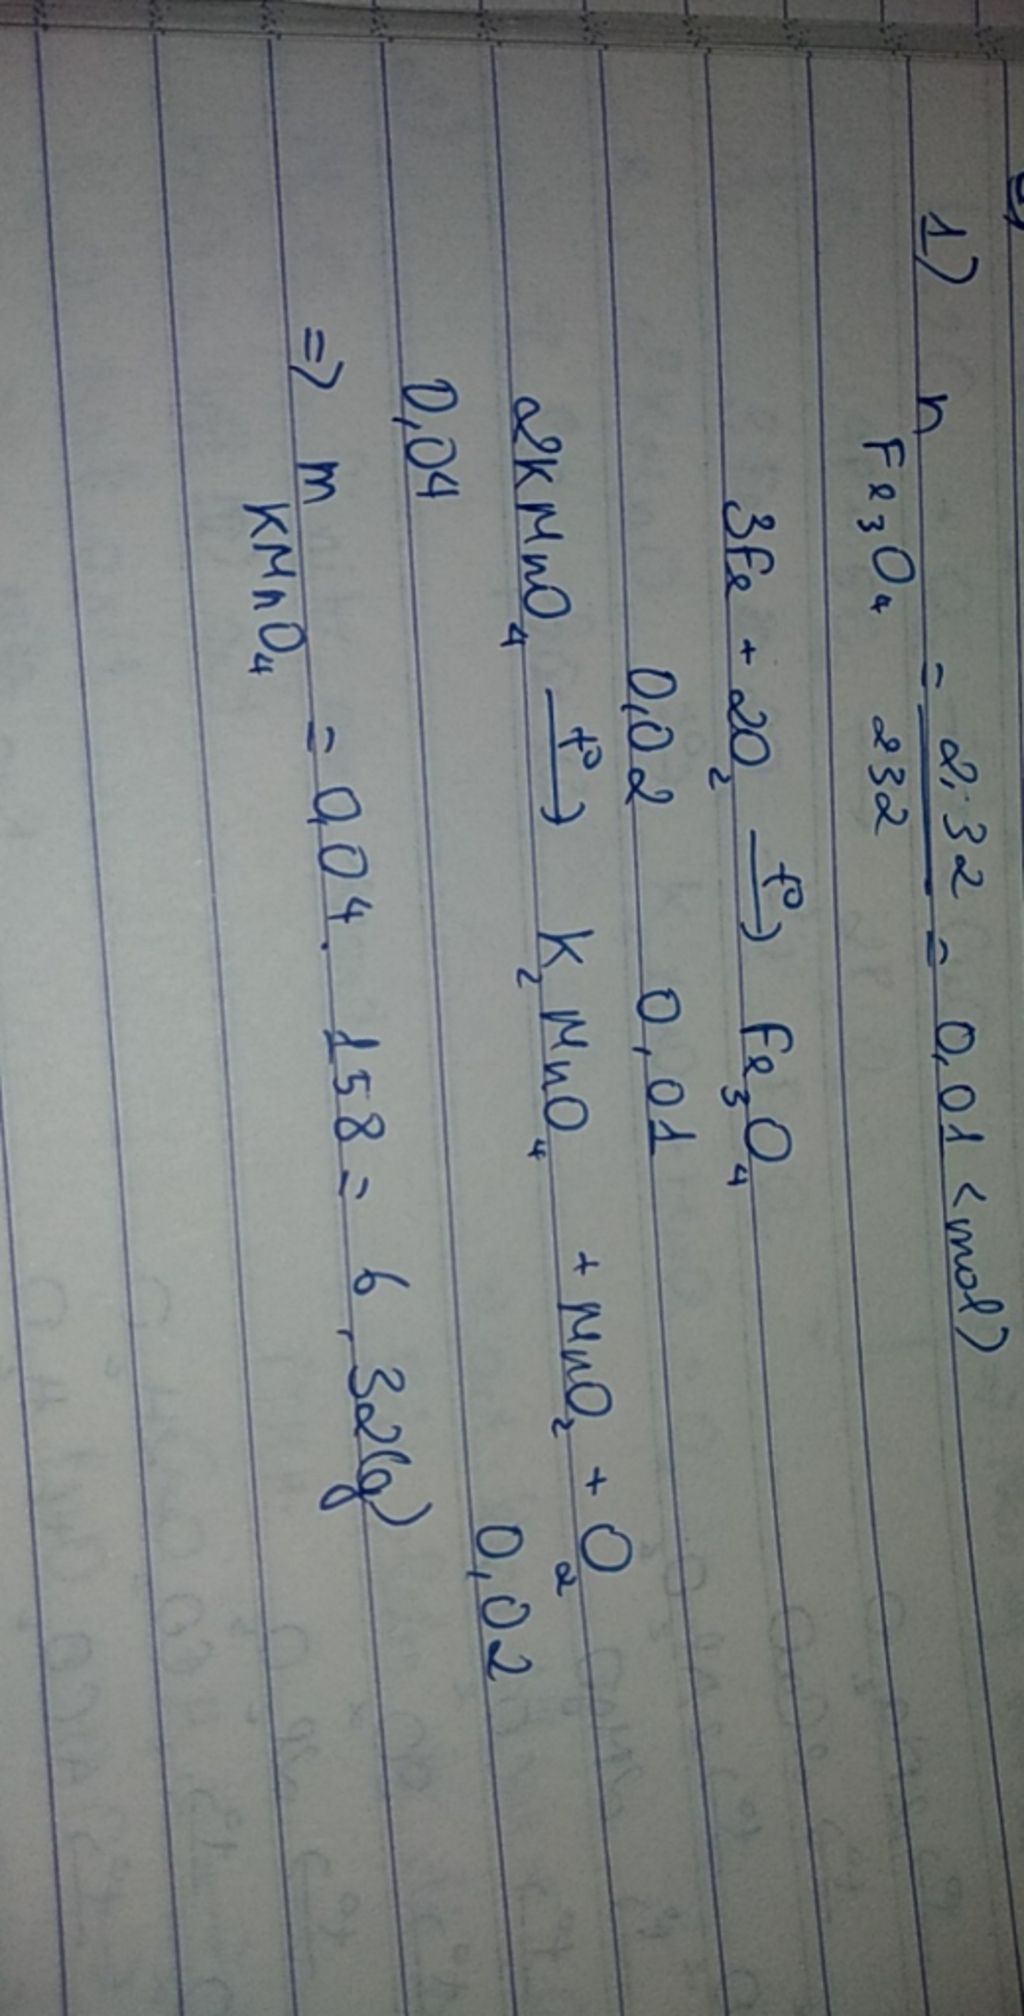 1) n Fe₃O₄ = 2,32 / 232 = 0,01 <mol)
3Fe + 2O₂ —t⁰→ Fe₃O₄
0,02 0,01
2KMnO₄ —t⁰→ K₂MnO₄ + MnO₂ + O₂
0,04 0,02
=> m KMnO₄ = 0,04 . 158 = 6,32(g)